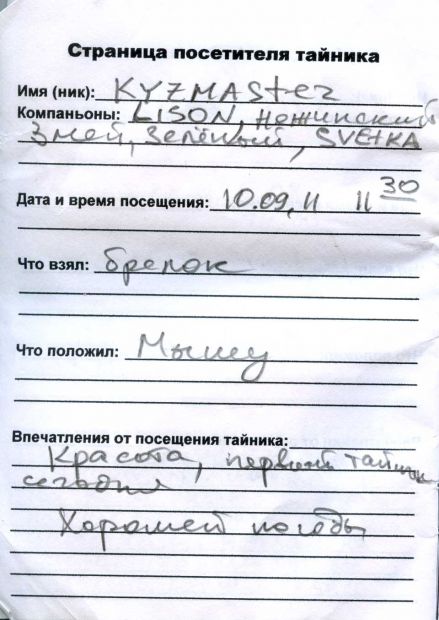 Страница посетителя тайника
Имя (ник): KYZMASTER
Компаньоны: LISON, Нежинский
Змей, Зелёный, SVETKA
Дата и время посещения: 10.09.11 11 30
Что взял: брелок
Что положил: Мышу
Впечатления от посещения тайника:
Красота, первый тайник
сегодня
Хорошей погоды